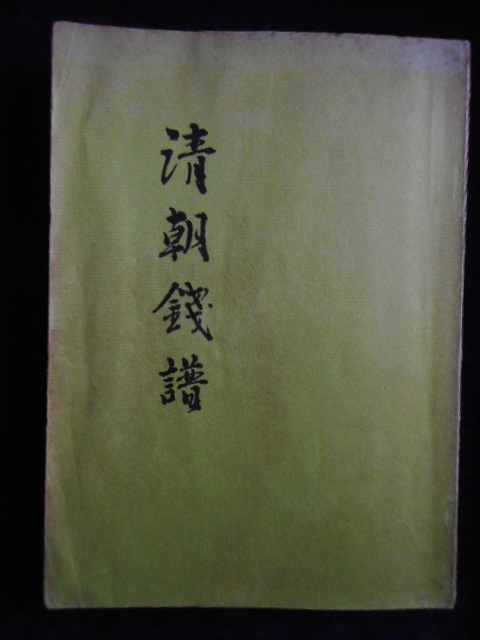 清朝錢譜